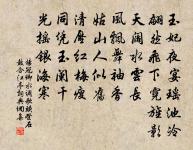 玉妃夜宴瑶池冷
翩然飛下霓旌影
天闊水雲長
風飄舞袖香
姑山人似舊
清壓紅梅瘦
同凭玉闌干
光摇銀海寒